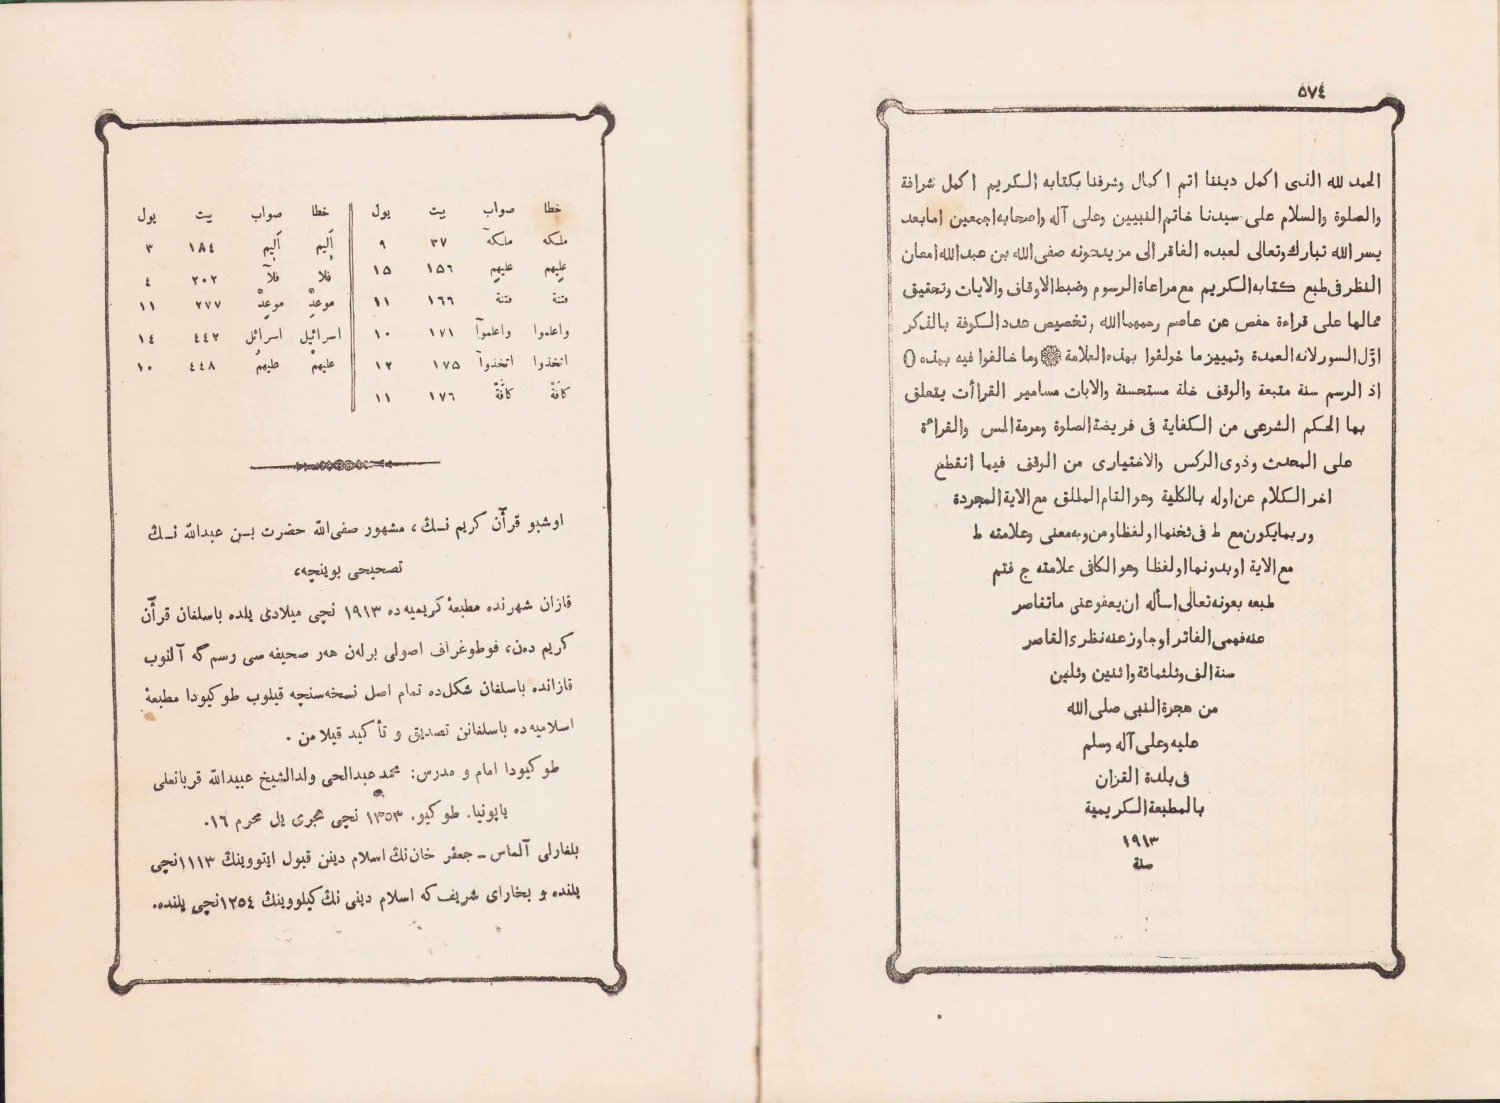 ٥٧٤
الحمد لله الذى اكمل ديننا اتم اكمال وشرفنا بكتابه الكريم اكمل شرافة
والصلوة والسلام على سيدنا خاتم النبيين وعلى آله واصحابه اجمعين امابعد
يسر الله تبارك وتعالى لعبده الفاقر الى مزيد عونه صفى الله بن عبدالله امعان
النظر فى طبع كتابه الكريم مع مراعاة الرسوم وضبط الاوقاف والايات وتحقيق
محالها على قراءة حفص عن عاصم رحمهما الله وتخصيص عدد الكوفة بالذكر
اوّل السور لانه العمدة وتمييز ما خولفوا بهذه العلامة وما خالفوا فيه بهذه ()
اذ الرسم سنة متبعة والوقف خلة مستحسنة والايات مسامير القراأت يتعلق
بها الحكم الشرعى من الكفاية فى فريضة الصلوة وحرمة المس والقراءة
على المحدث وذوى الركس والاختيارى من الوقف فيما انقطع
اخر الكلام عن اوله بالكلية وهو التام المطلق مع الاية المجردة
وربما يكون مع ط فى تختها او لفظا ومن وجه معنى وعلامته ط
مع الاية او بدونها او لفظا وهو الكافى علامته ج فتم
طبعه بعونه تعالى اسأله ان يعفو عنى ما تقاصر
عنه فهمى الفاتر او جاوز عنه نظرى القاصر
سنة الف وثلثمائة واثنين وثلين
من هجرة النبى صلى الله
عليه وعلى آله وسلم
فى بلدة القزان
بالمطبعة الكريمية
١٩١٣
سنة
خطا صواب بيت يول خطا صواب بيت يول
ملكه ملكة ٣٧ ٩ اَليم اَليم ١٨٤ ٣
عليهم عليهم ١٥٦ ١٥ فلا فلآ ٢٠٢ ٤
فتنة فتنة ١٦٦ ١١ موعد موعد ٢٧٧ ١١
واعلموا واعلموآ ١٧١ ١٠ اسرائيل اسرائل ٤٤٢ ١٤
اتخذوا اتخذوآ ١٧٥ ١٢ عليهم عليهم ٤٤٨ ١٠
كافة كافة ١٧٦ ١١
اوشبو قرآن كريم نـڭ، مشهور صفى الله حضرت بـن عبدالله نـڭ
تصحيحى بوينچه،
قازان شهرنده مطبعۀ كريميه ده ١٩١٣ نچى ميلادى يلده باسلغان قرآن
كريم دەن، فوطوغراف اصولى برلەن هەر صحيفه سى رسم گه آلنوب
قازانده باسلغان شكل ده تمام اصل نسخه سنچه قيلوب طوكيودا مطبعۀ
اسلاميه ده باسلغانن تصديق و تأكيد قيلامن.
طوكيودا امام و مدرس: محمد عبدالحى ولد الشيخ عبيدالله قربانعلى
ياپونيا. طوكيو. ١٣٥٣ نچى هجرى يل محرم ١٦.
بلغارلى آلماس ـ جعفر خان نڭ اسلام دينن قبول ايتووينڭ ١١١٣نچى
يلنده و بخاراى شريف كه اسلام دينى نڭ كيلووينڭ ١٢٥٤نچى يلنده.